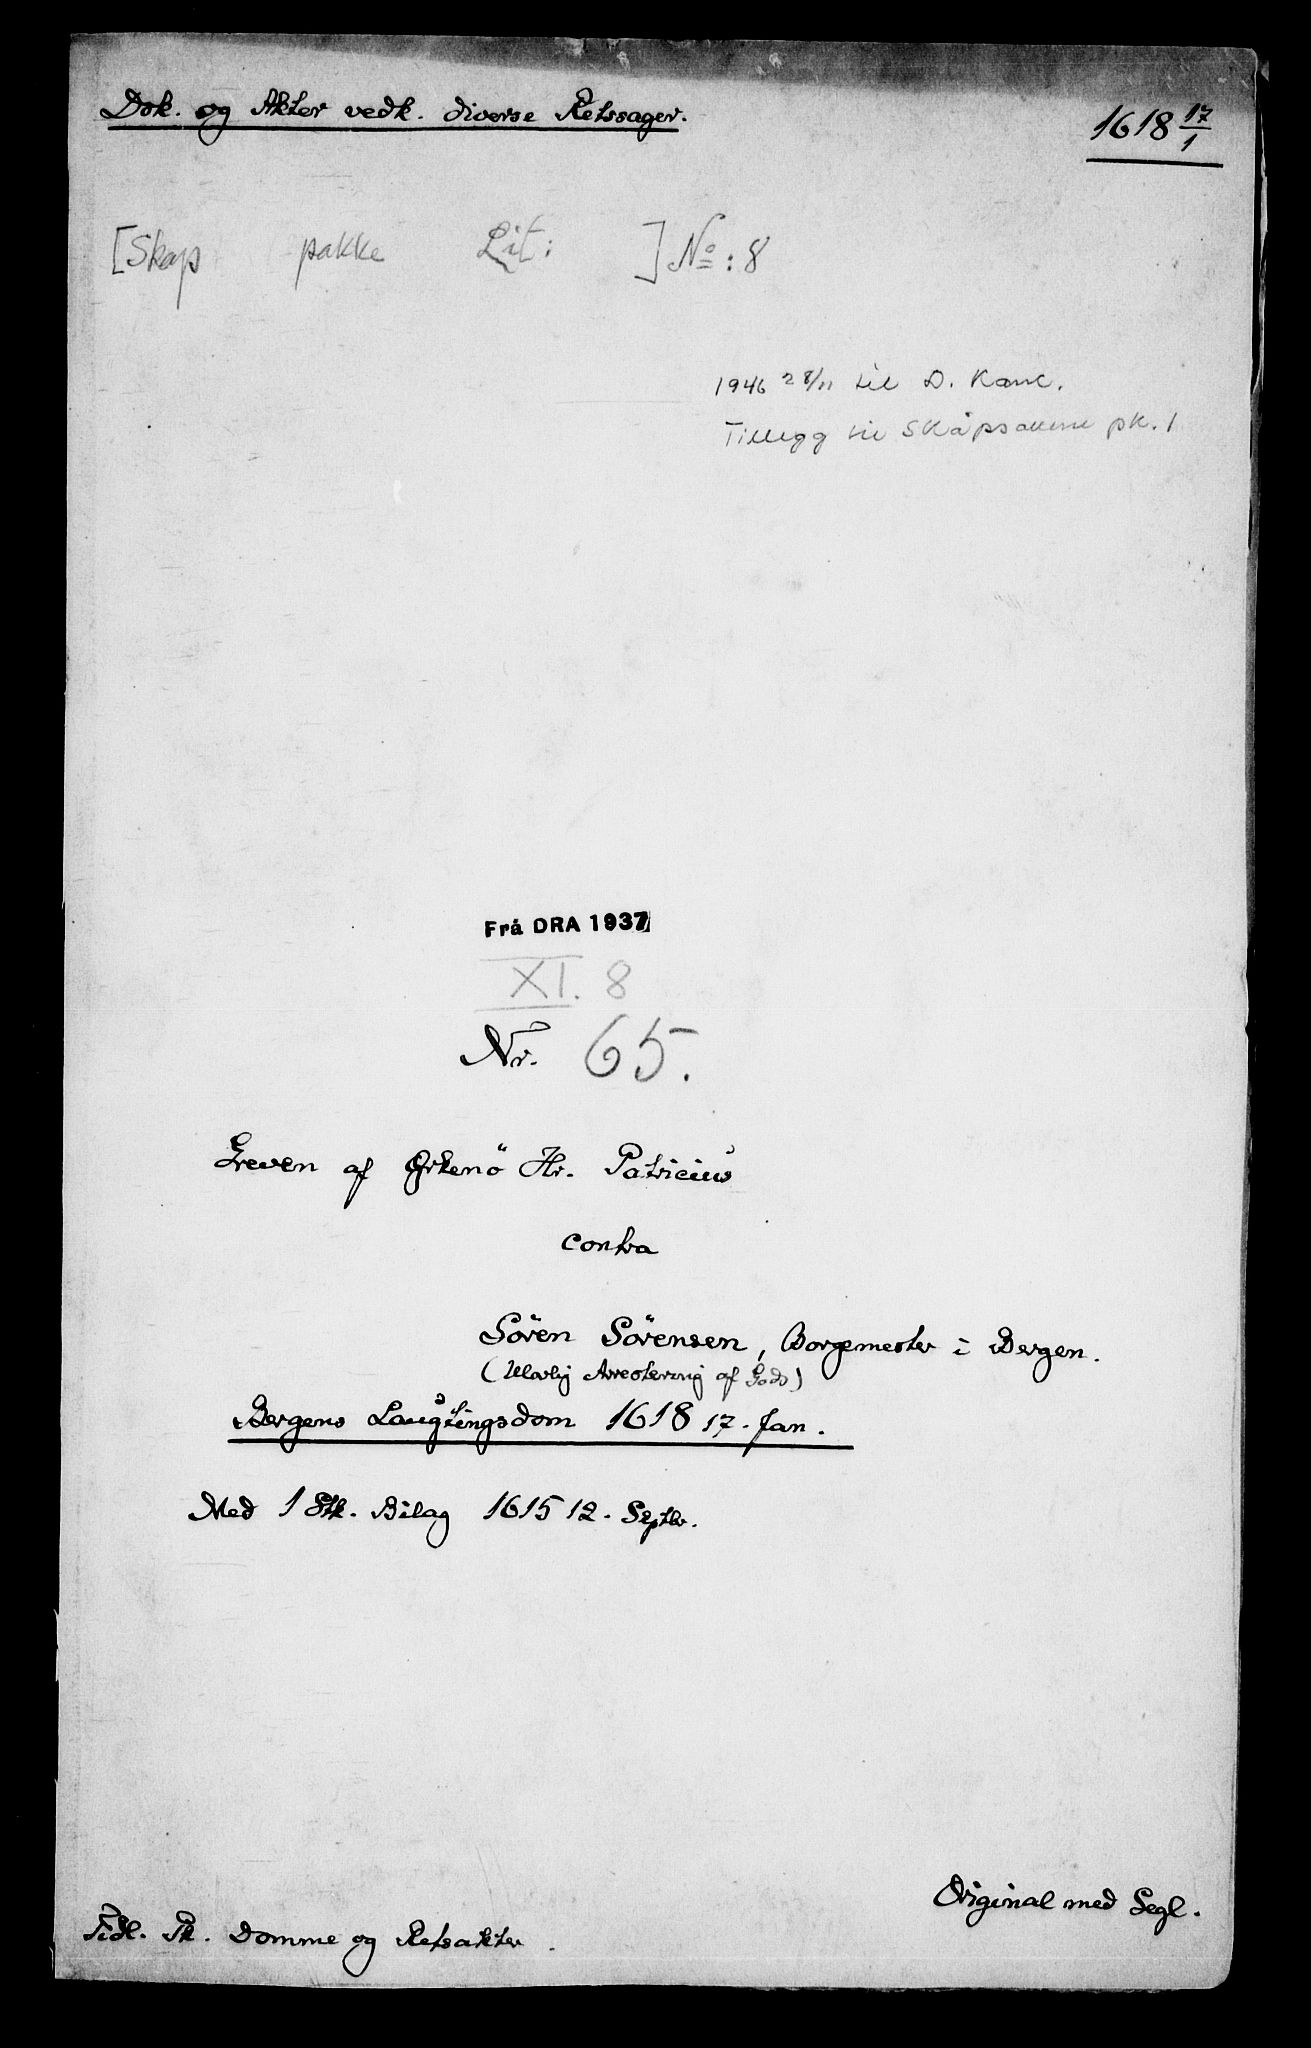 Dok. og Akter vedk. diverse Retssager.
1618 17/1
[Skap pakke Lit: ] No: 8
1946 28/11 til D. Kanc.
Tillegg til Skåpsakene pk. 1
Frá DRA 1937
XI. 8
Nr. 65.
Greven af Orkenö Hr. Patricius
contra
Sören Sörensen, Borgemester i Bergen.
(Ulovlig Arrestering af Gods)
Bergens Laugtingsdom 1618 17. Jan.
Med 1 Stk. Bilag 1615 12. Septbr.
Original med Segl.
Tidl. Pk. Domme og Retsakter.